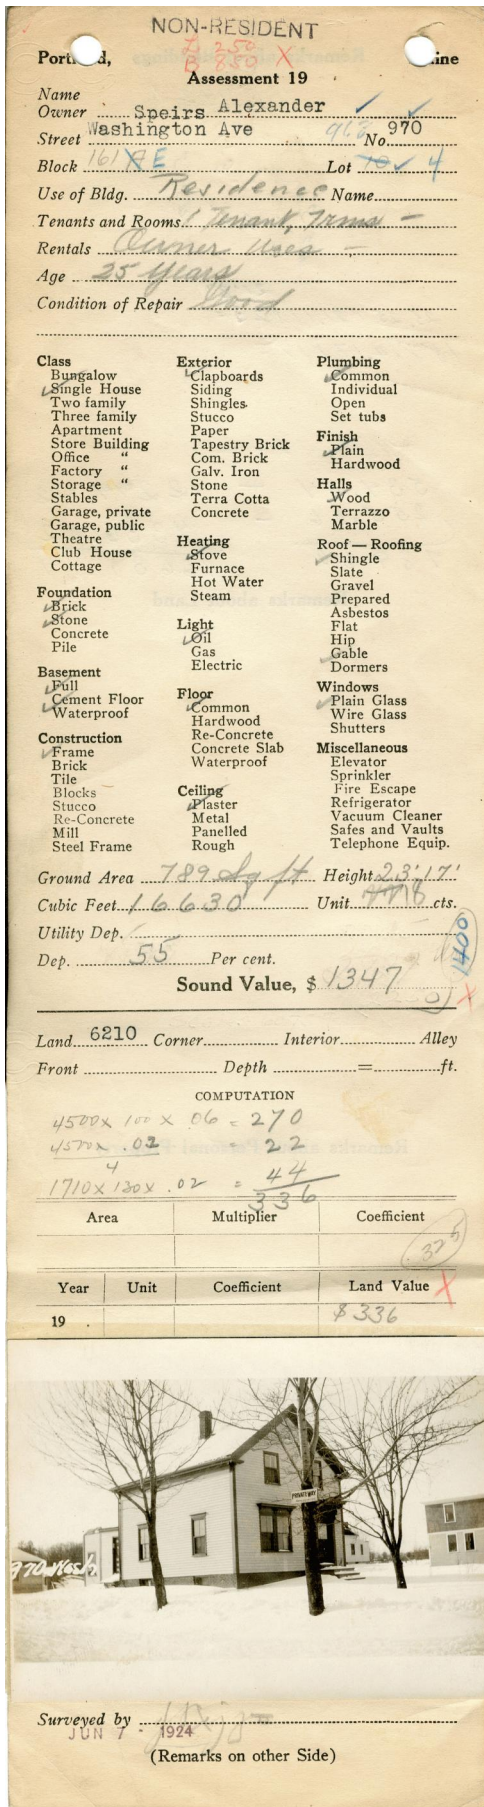 NON-RESIDENT
L 250
B 850 X
Portland, Maine
Assessment 19
Name
Owner Speirs Alexander
Street Washington Ave 968 No. 970
Block 161 E Lot 4
Use of Bldg. Residence Name
Tenants and Rooms 1 Tenant, 7rms -
Rentals Owner Uses -
Age 25 Years
Condition of Repair Good
Class
Bungalow
Single House
Two family
Three family
Apartment
Store Building
Office "
Factory "
Storage "
Stables
Garage, private
Garage, public
Theatre
Club House
Cottage
Foundation
Brick
Stone
Concrete
Pile
Basement
Full
Cement Floor
Waterproof
Construction
Frame
Brick
Tile
Blocks
Stucco
Re-Concrete
Mill
Steel Frame
Exterior
Clapboards
Siding
Shingles
Stucco
Paper
Tapestry Brick
Com. Brick
Galv. Iron
Stone
Terra Cotta
Concrete
Heating
Stove
Furnace
Hot Water
Steam
Light
Oil
Gas
Electric
Floor
Common
Hardwood
Re-Concrete
Concrete Slab
Waterproof
Ceiling
Plaster
Metal
Panelled
Rough
Plumbing
Common
Individual
Open
Set tubs
Finish
Plain
Hardwood
Halls
Wood
Terrazzo
Marble
Roof — Roofing
Shingle
Slate
Gravel
Prepared
Asbestos
Flat
Hip
Gable
Dormers
Windows
Plain Glass
Wire Glass
Shutters
Miscellaneous
Elevator
Sprinkler
Fire Escape
Refrigerator
Vacuum Cleaner
Safes and Vaults
Telephone Equip.
Ground Area 789 Sq ft Height 23'.17'
Cubic Feet 16630 Unit 18 cts.
Utility Dep.
Dep. 55 Per cent.
1400
Sound Value, $ 1347
X
Land 6210 Corner Interior Alley
Front Depth = ft.
COMPUTATION
4500 x 100 x .06 = 270
4500 x .02 = 22
4
1710 x 130 x .02 = 44
336
Area Multiplier Coefficient
325
Year Unit Coefficient Land Value X
19 . $336
970 Wash.
PRIVATE WAY
Surveyed by
JUN 7 - 1924
(Remarks on other Side)